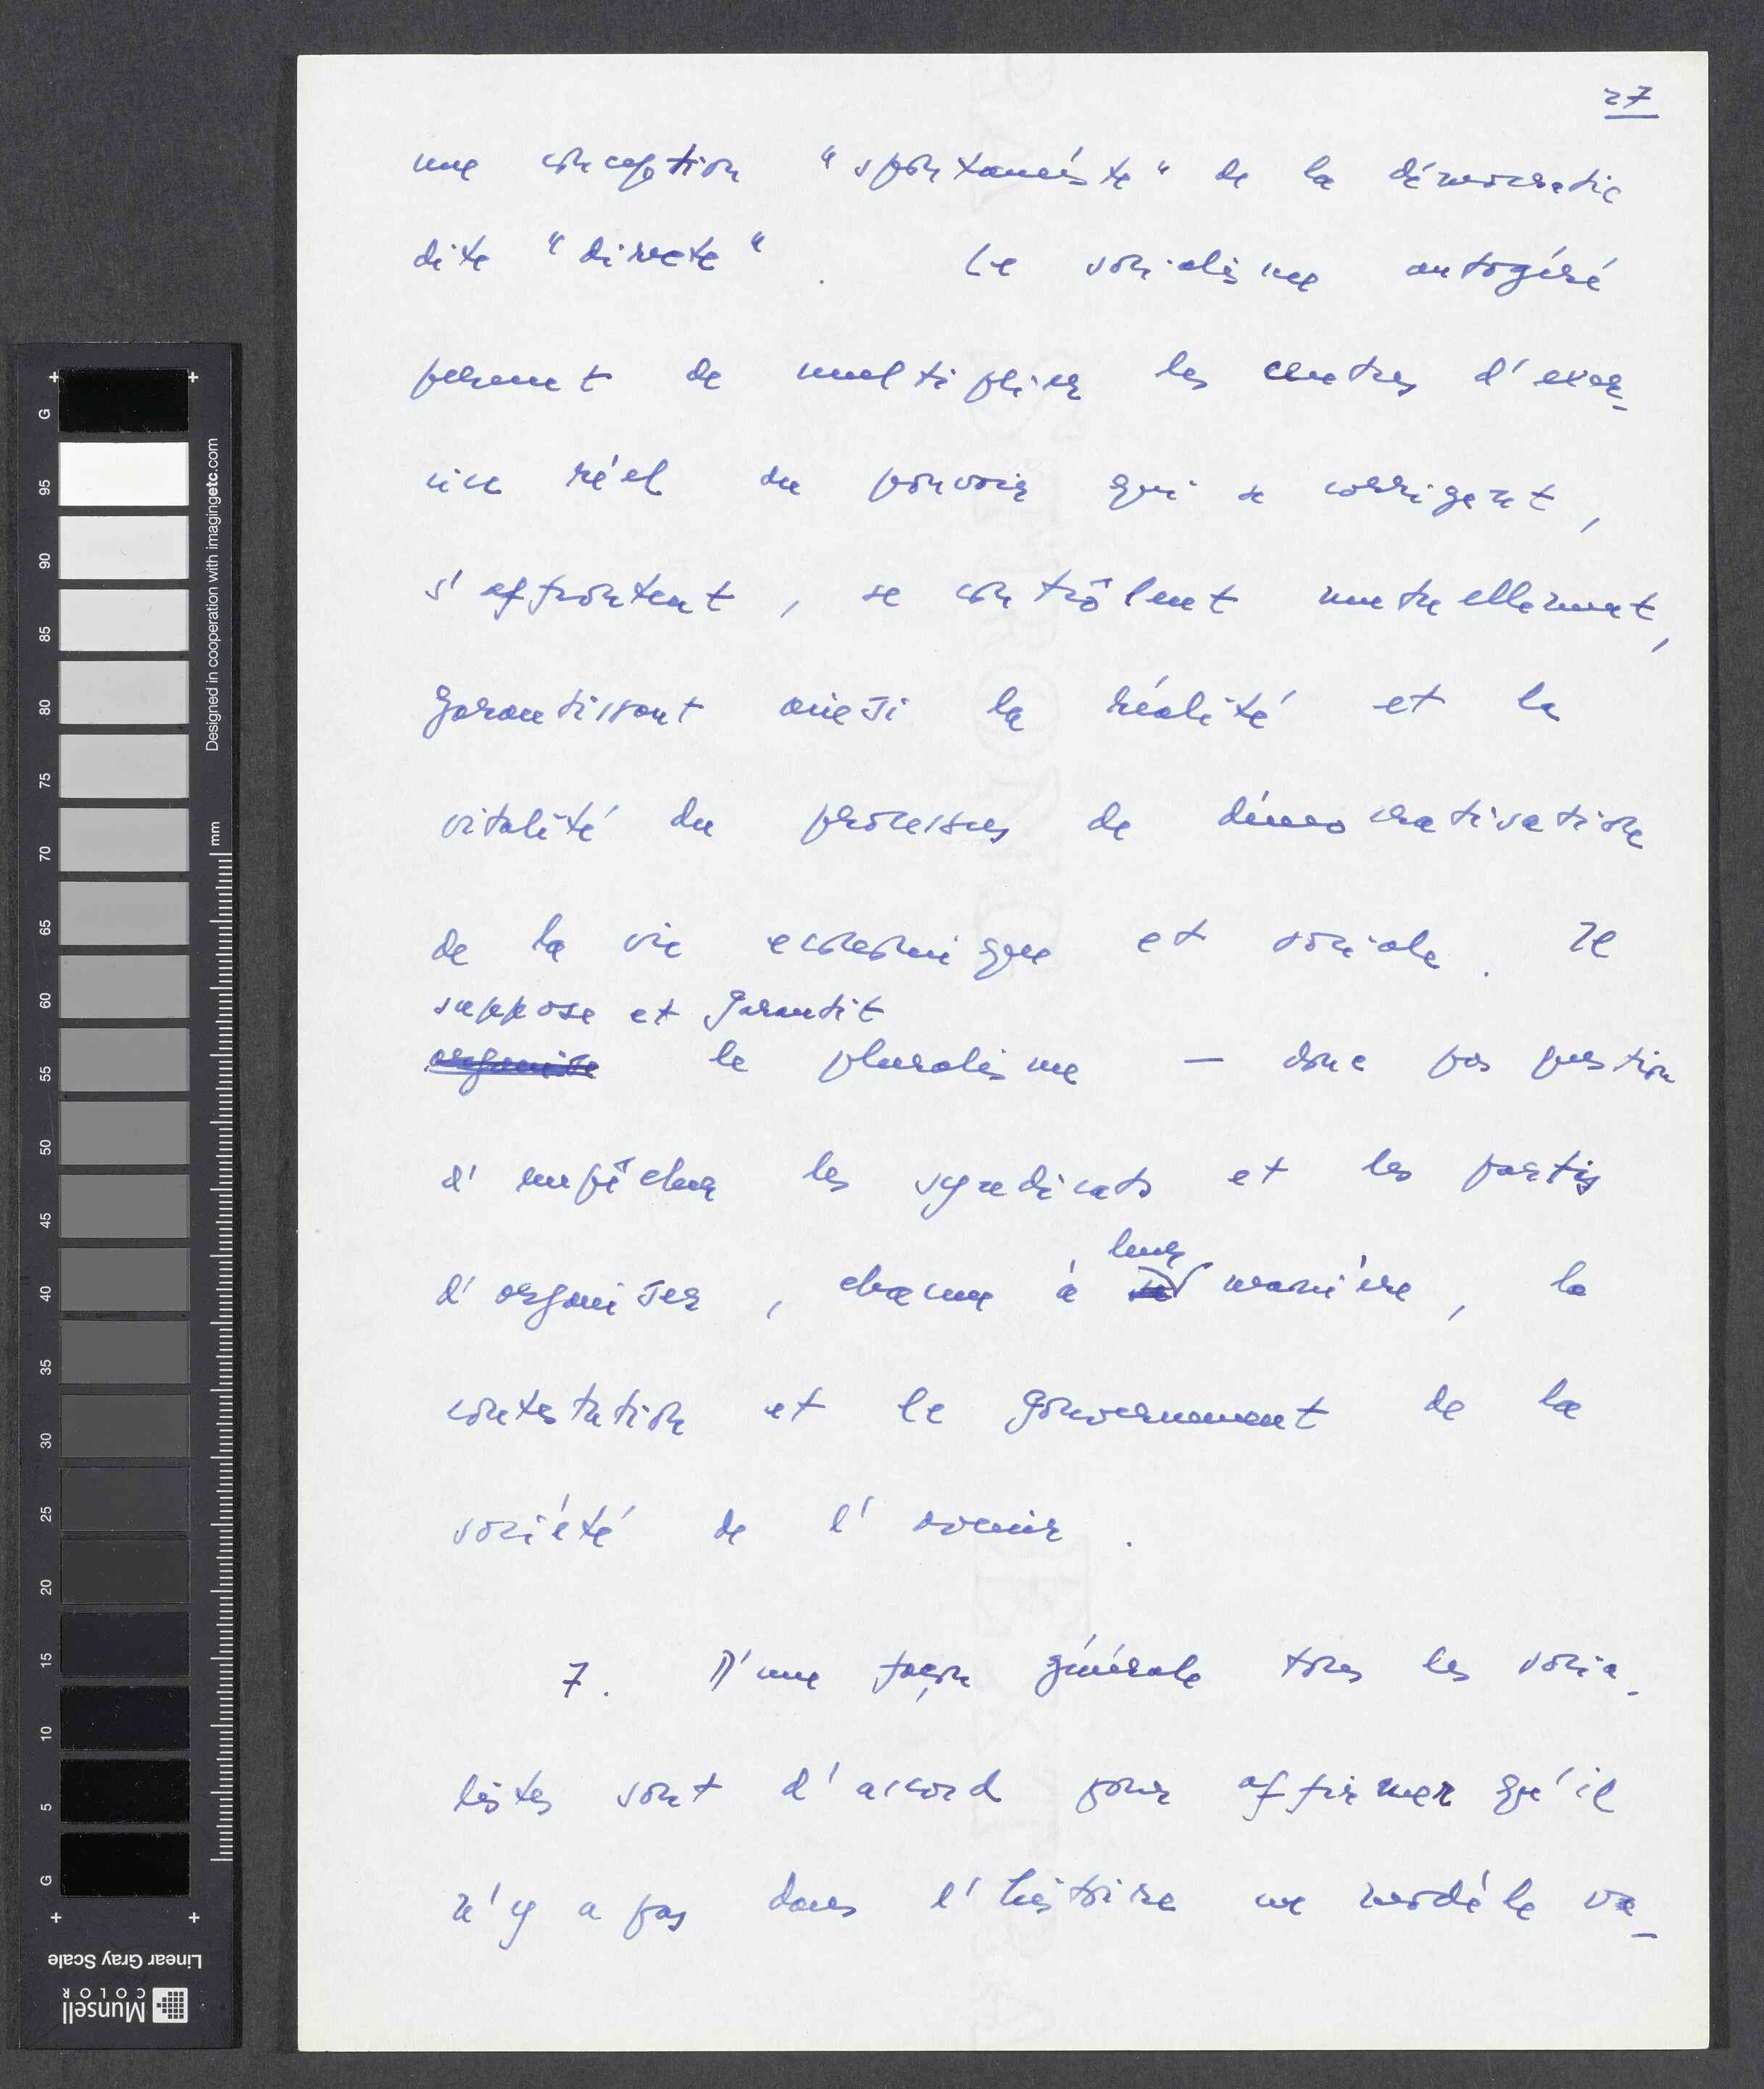 27
une conception "spontanéiste" de la démocratie
dite "directe". Le socialisme autogéré
permet de multiplier les centres d'exer-
cice réel du pouvoir qui se corrigent,
s'affrontent, se contrôlent mutuellement,
garantissant ainsi la réalité et la
vitalité du processus de démocratisation
de la vie economique et sociale. Il
suppose et garantit
organise le pluralisme — donc pas question
d'empêcher les syndicats et les partis
leur
d'organiser, chacun à sa manière, la
contestation et le gouvernement de la
société de l'avenir.
7. D'une façon générale tous les socia-
listes sont d'accord pour affirmer qu'il
n'y a pas dans l'histoire un modèle va-
Designed in cooperation with imagingetc.com
mm
G
95
90
85
80
75
70
65
60
55
50
45
40
35
30
25
20
15
10
5
G
Linear Gray Scale
Munsell
COLOR